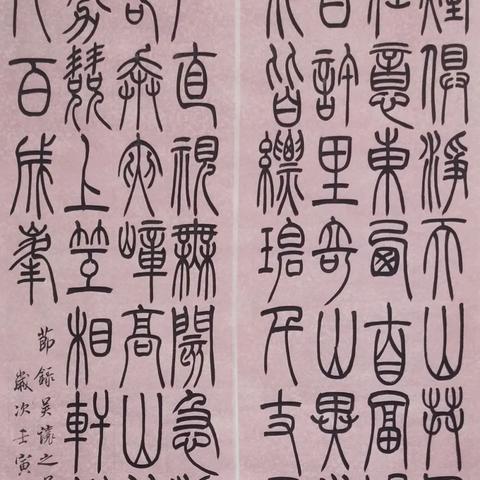 煙俱淨天山共
任意東西自富
百許里奇山異
水皆縹碧千丈
直視無閡急
若奔夾嶂高山
競上笠相軒
百成峯
節錄吳讓之
歲次壬寅